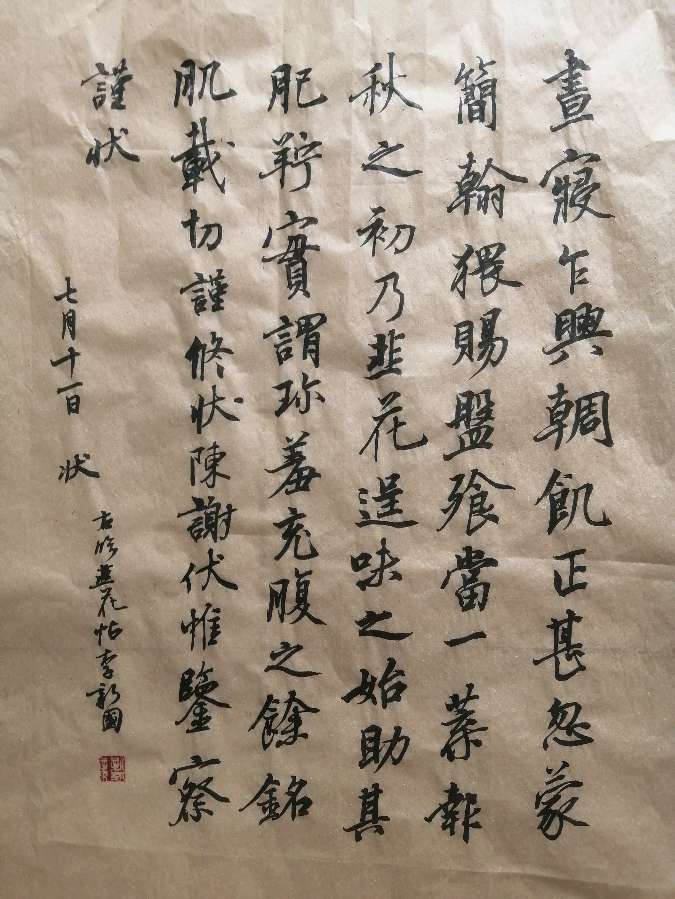 晝寢乍興輖飢正甚忽蒙
簡翰猥賜盤飧當一葉報
秋之初乃韭花逞味之始助其
肥羜實謂珍羞充腹之餘銘
肌載切謹修狀陳謝伏惟鑒察
謹狀
七月十一日 狀
右臨韭花帖李新國